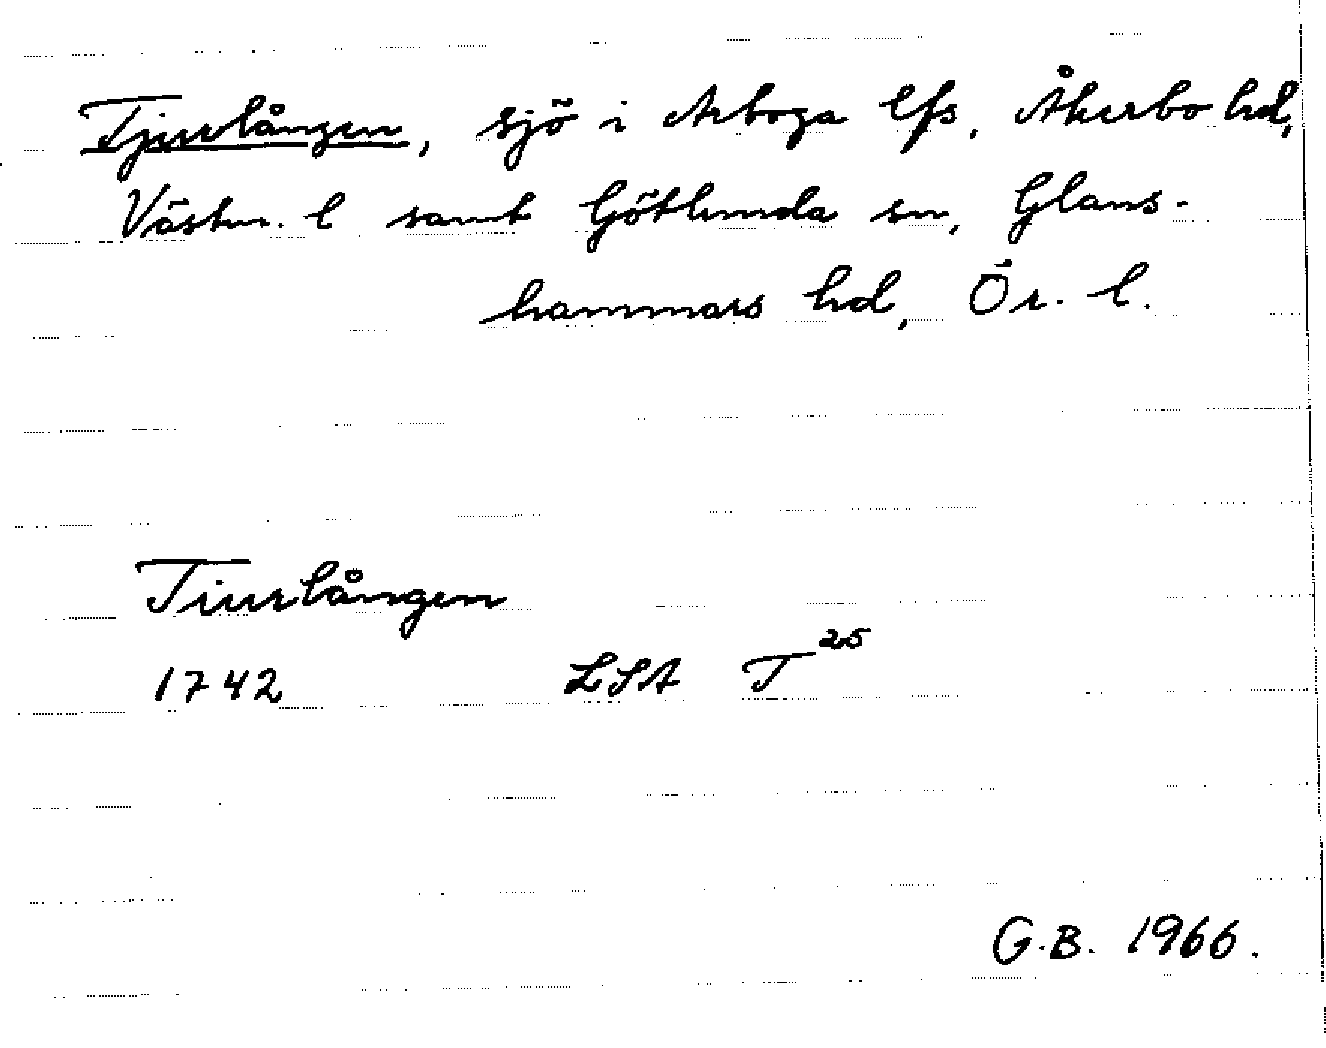 Tjurlången, sjö i Arboga lfs, Åkerbo hd,
Västm. l samt Götlunda sn, Glans-
hammars hd, Ör. l.
Tiurlången
1742 LSA T 25
G.B. 1966.